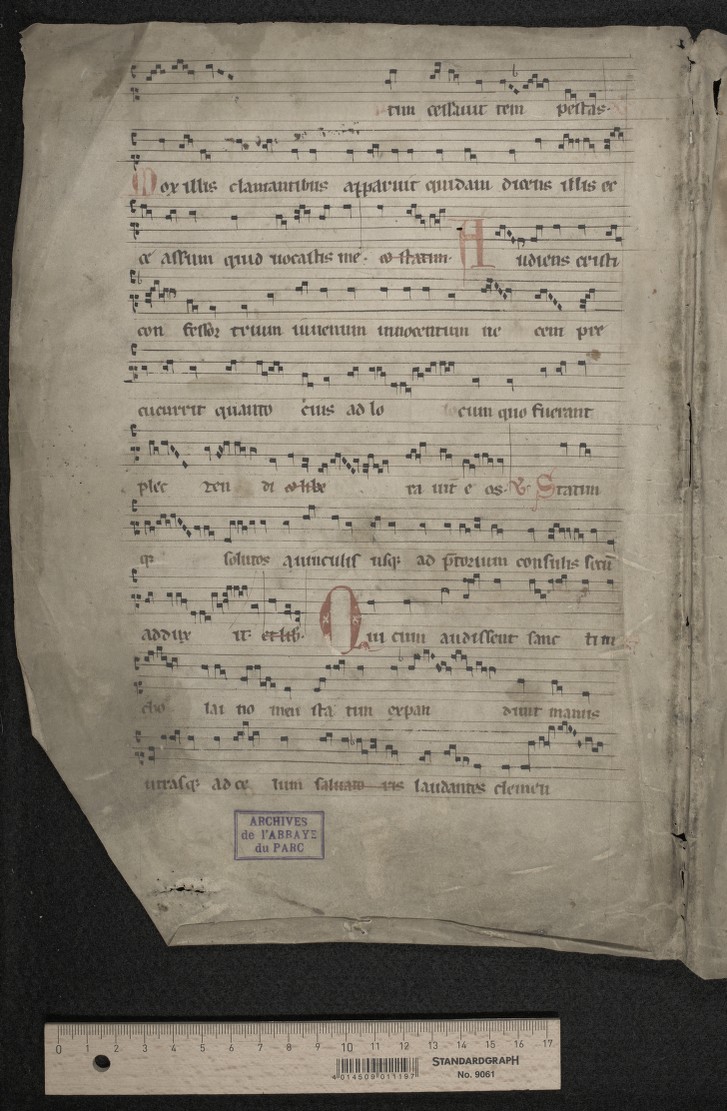 tim cessauit tem pestas.
Mox illis clamantibus apparuit quidam dicens illis ec
ce assum quid uocastis me. et statim. Audiens cristi
con fessor trium iuuenum innocentum ne cem pre
cucurrit quanto cius ad lo cum quo fuerant
plec ten di et libe ra uit e os. V. Statim
q solutos quinculis usq ad ptorium consulis secū
addux it. et lib. Qui cum audissent sanc ti ni
cho lai no men sta tim expan dunt manus
utrasq ad ce lum saluato ris laudantes clemen
ARCHIVES
de l'ABBAYE
du PARC
0 1 2 3 4 5 6 7 8 9 10 11 12 13 14 15 16 17
STANDARDGRAPH
No. 9061
4 014509 011197